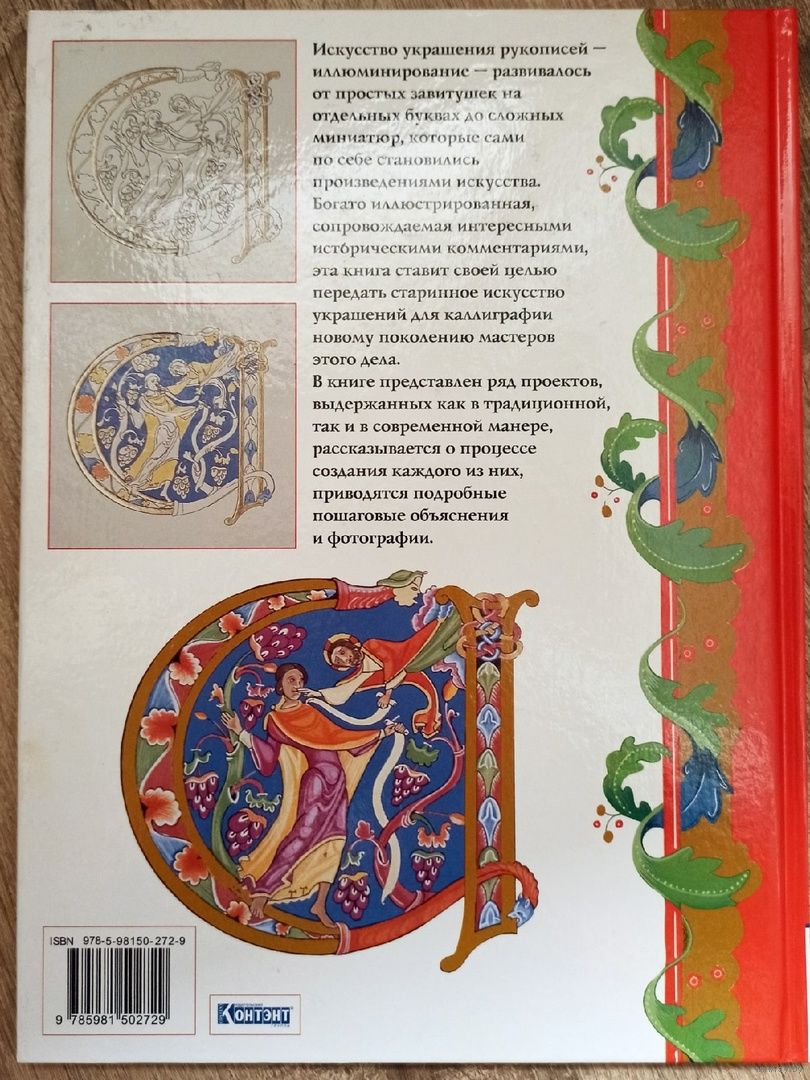 Искусство украшения рукописей —
иллюминирование — развивалось
от простых завитушек на
отдельных буквах до сложных
миниатюр, которые сами
по себе становились
произведениями искусства.
Богато иллюстрированная,
сопровождаемая интересными
историческими комментариями,
эта книга ставит своей целью
передать старинное искусство
украшений для каллиграфии
новому поколению мастеров
этого дела.
В книге представлен ряд проектов,
выдержанных как в традиционной,
так и в современной манере,
рассказывается о процессе
создания каждого из них,
приводятся подробные
пошаговые объяснения
и фотографии.
ISBN 978-5-98150-272-9
9 785981 502729
ИЗДАТЕЛЬСКАЯ
КОНТЭНТ
ГРУППА